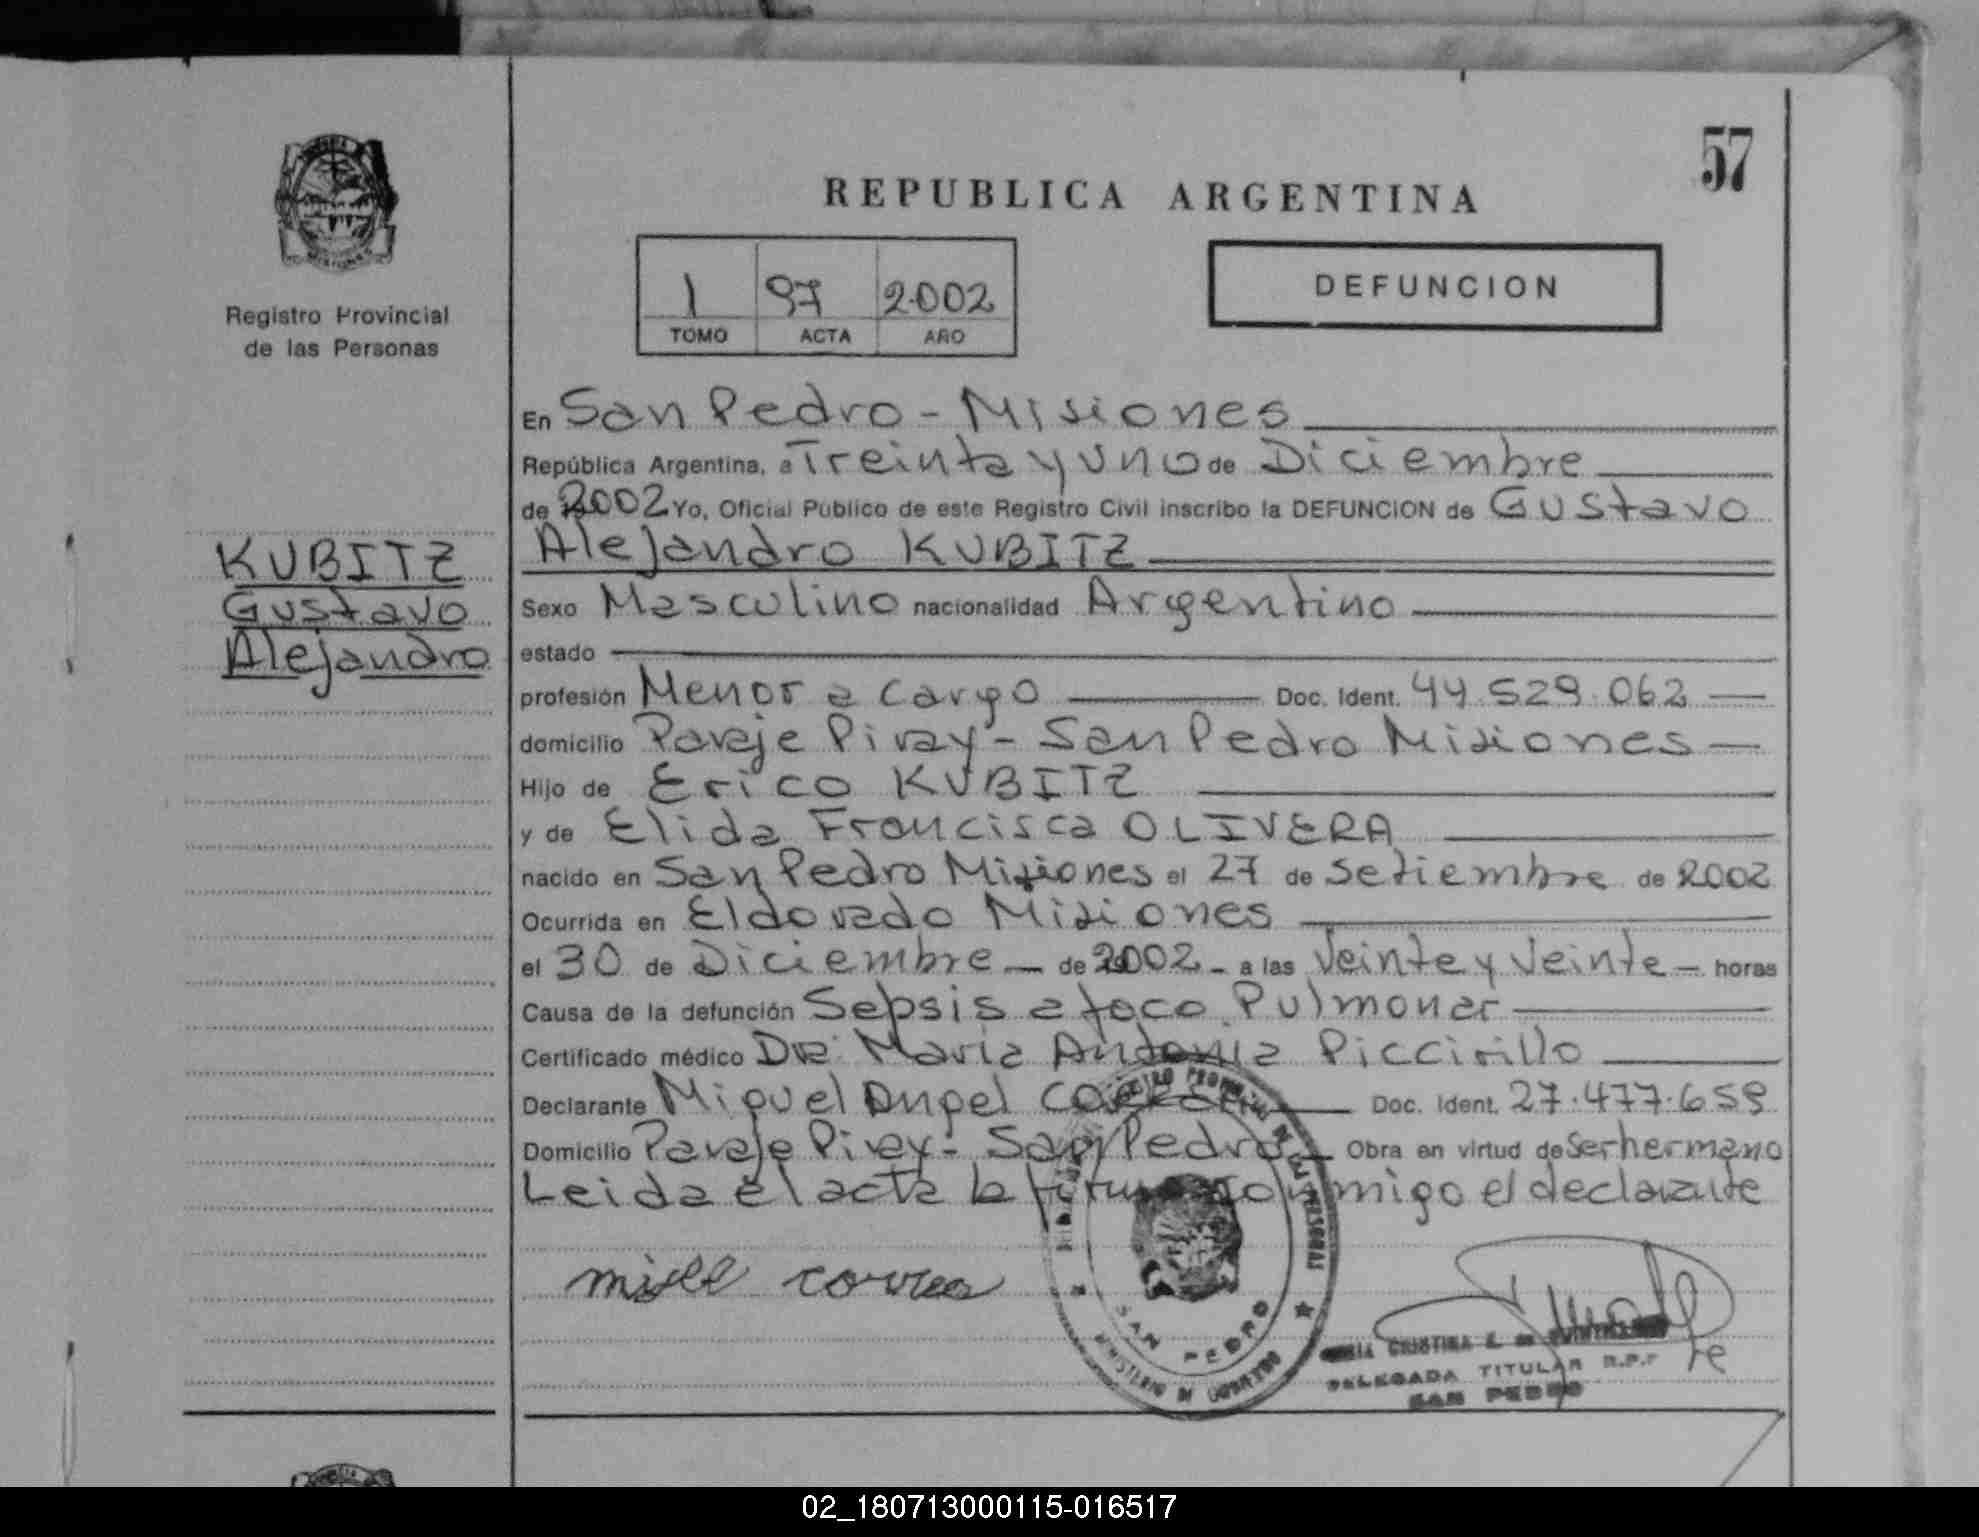 57
REPUBLICA ARGENTINA
Registro Provincial
de las Personas
1 97 2002
TOMO ACTA AÑO
DEFUNCION
KUBITZ
Gustavo
Alejandro
En San Pedro - Misiones
República Argentina, a Treinta y uno de Diciembre
de 2002 Yo, Oficial Público de este Registro Civil inscribo la DEFUNCION de Gustavo
Alejandro KUBITZ
Sexo Masculino nacionalidad Argentino
estado
profesión Menor a cargo Doc. Ident. 44.529.062
domicilio Paraje Piray - San Pedro Misiones
Hijo de Erico KUBITZ
y de Elida Francisca OLIVERA
nacido en San Pedro Misiones el 27 de Setiembre de 2002
Ocurrida en Eldorado Misiones
el 30 de Diciembre de 2002 - a las Veinte y Veinte horas
Causa de la defunción Sepsis a foco Pulmonar
Certificado médico Dra. Maria Antonia Piccirillo
Declarante Miguel Angel Doc. Ident. 27.477.659
Domicilio Paraje Piray - San Pedro Obra en virtud de Ser hermano
Leida el acta la firma conmigo el declarante
correa
REGISTRO PROVINCIAL DE LAS PERSONAS
SAN PEDRO
MINISTERIO DE GOBIERNO
CRISTINA
DELEGADA TITULAR R.P.P
SAN PEDRO
02_180713000115-016517